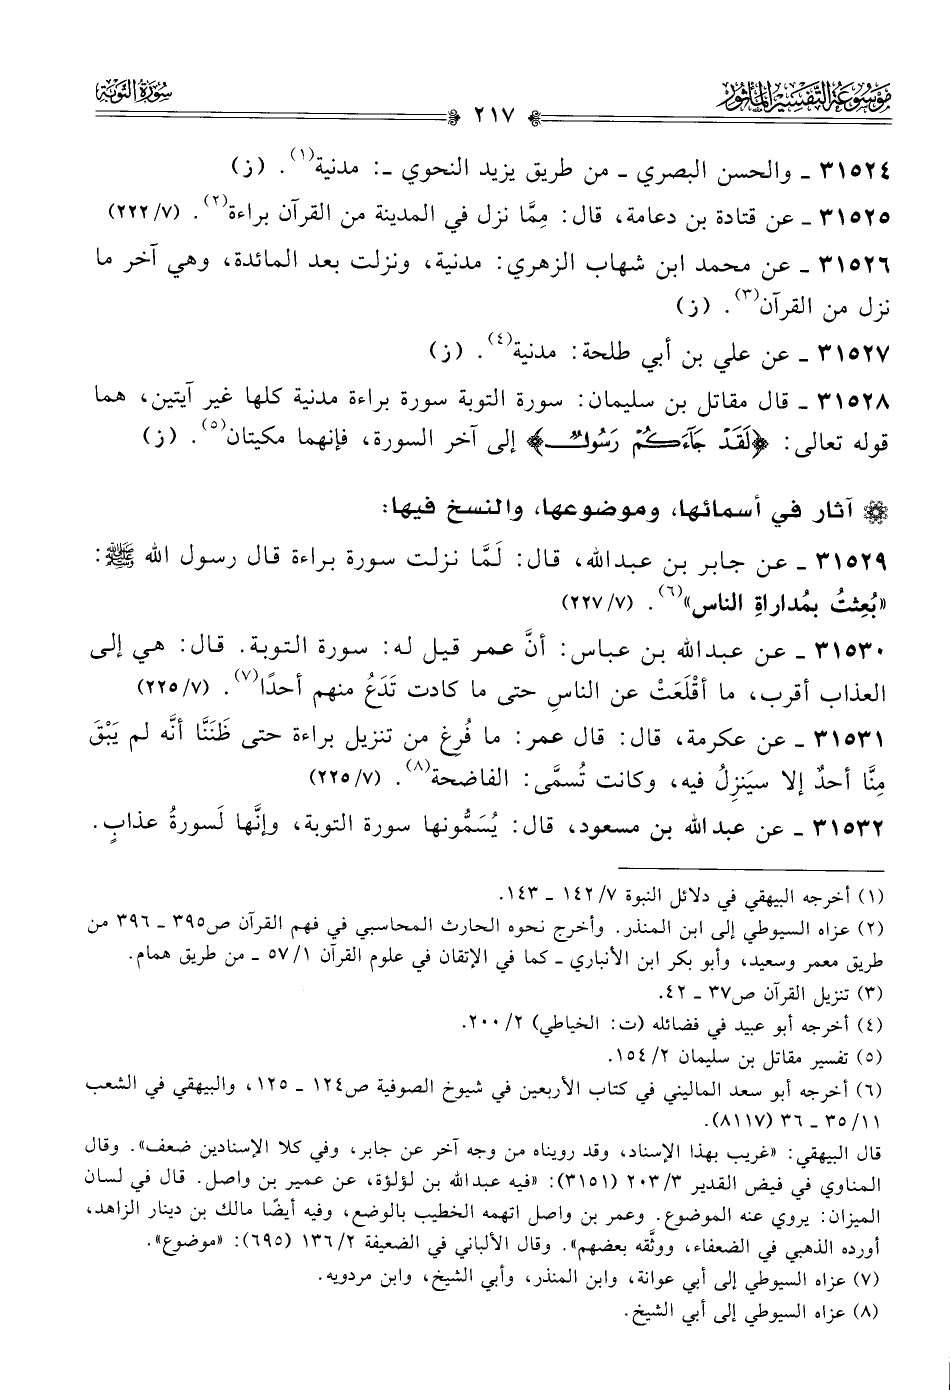 موسوعة التفسير المأثور
سورة التوبة
٢١٧
٣١٥٢٤ ـ والحسن البصري ـ من طريق يزيد النحوي ـ: مدنية(١). (ز)
٣١٥٢٥ ـ عن قتادة بن دعامة، قال: مِمَّا نزل في المدينة من القرآن براءة(٢). (٢٢٢/٧)
٣١٥٢٦ ـ عن محمد ابن شهاب الزهري: مدنية، ونزلت بعد المائدة، وهي آخر ما
نزل من القرآن(٣). (ز)
٣١٥٢٧ ـ عن علي بن أبي طلحة: مدنية(٤). (ز)
٣١٥٢٨ ـ قال مقاتل بن سليمان: سورة التوبة سورة براءة مدنية كلها غير آيتين، هما
قوله تعالى: ﴿لَقَدْ جَآءَكُمْ رَسُولٌ﴾ إلى آخر السورة، فإنهما مكيتان(٥). (ز)
آثار في أسمائها، وموضوعها، والنسخ فيها:
٣١٥٢٩ ـ عن جابر بن عبدالله، قال: لَمَّا نزلت سورة براءة قال رسول الله ﷺ:
«بُعِثتُ بمُداراةِ الناس»(٦). (٢٢٧/٧)
٣١٥٣٠ ـ عن عبدالله بن عباس: أنَّ عمر قيل له: سورة التوبة. قال: هي إلى
العذاب أقرب، ما أقْلَعَتْ عن الناسِ حتى ما كادت تَدَعُ منهم أحدًا(٧). (٢٢٥/٧)
٣١٥٣١ ـ عن عكرمة، قال: قال عمر: ما فُرِغ من تنزيل براءة حتى ظَنَنَّا أنَّه لم يَبْقَ
مِنَّا أحدٌ إلا سيَنزِلُ فيه، وكانت تُسمَّى: الفاضحة(٨). (٢٢٥/٧)
٣١٥٣٢ ـ عن عبدالله بن مسعود، قال: يُسَمُّونها سورة التوبة، وإنَّها لَسورةُ عذابٍ.
(١) أخرجه البيهقي في دلائل النبوة ١٤٢/٧ ـ ١٤٣.
(٢) عزاه السيوطي إلى ابن المنذر. وأخرج نحوه الحارث المحاسبي في فهم القرآن ص٣٩٥ ـ ٣٩٦ من
طريق معمر وسعيد، وأبو بكر ابن الأنباري ـ كما في الإتقان في علوم القرآن ٥٧/١ ـ من طريق همام.
(٣) تنزيل القرآن ص٣٧ ـ ٤٢.
(٤) أخرجه أبو عبيد في فضائله (ت: الخياطي) ٢٠٠/٢.
(٥) تفسير مقاتل بن سليمان ١٥٤/٢.
(٦) أخرجه أبو سعد الماليني في كتاب الأربعين في شيوخ الصوفية ص١٢٤ ـ ١٢٥، والبيهقي في الشعب
٣٥/١١ ـ ٣٦ (٨١١٧).
قال البيهقي: «غريب بهذا الإسناد، وقد رويناه من وجه آخر عن جابر، وفي كلا الإسنادين ضعف». وقال
المناوي في فيض القدير ٢٠٣/٣ (٣١٥١): «فيه عبدالله بن لؤلؤة، عن عمير بن واصل. قال في لسان
الميزان: يروي عنه الموضوع. وعمر بن واصل اتهمه الخطيب بالوضع، وفيه أيضًا مالك بن دينار الزاهد،
أورده الذهبي في الضعفاء، ووثَّقه بعضهم». وقال الألباني في الضعيفة ١٣٦/٢ (٦٩٥): «موضوع».
(٧) عزاه السيوطي إلى أبي عوانة، وابن المنذر، وأبي الشيخ، وابن مردويه.
(٨) عزاه السيوطي إلى أبي الشيخ.